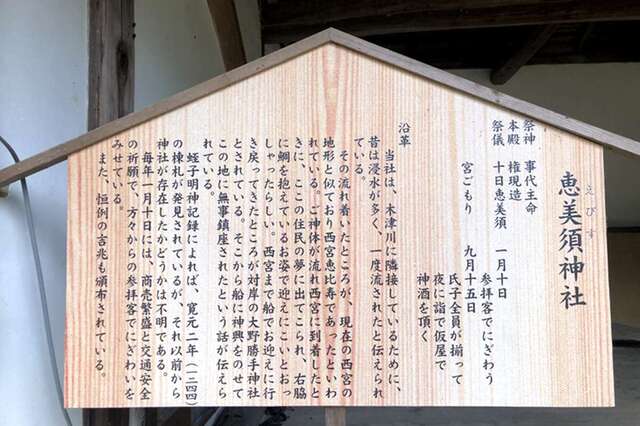 恵美須神社
えびす
祭神　事代主命
本殿　権現造
祭儀　十日恵美須　一月十日
参拝客でにぎわう
宮ごもり　九月十五日
氏子全員が揃って
夜に詣で仮屋で
神酒を頂く
沿革
当社は、木津川に隣接しているために、
昔は浸水が多く、一度流されたと伝えられ
ている。
その流れ着いたところが、現在の西宮の
地形と似ており西宮恵比寿であったといわ
れている。ご神体が流れ西宮に到着したと
きに、ここの住民の夢に出てこられ、右脇
に鯛を抱えているお姿で迎えにこいとおっ
しゃったらしい。西宮まで船でお迎えに行
き戻ってきたところが対岸の大野勝手神社
とされている。そこから船に神輿をのせて
この地に無事鎮座されたという話が伝えら
れている。
蛭子明神記録によれば、寛元二年（一二四四）
の棟札が発見されているが、それ以前から
神社が存在したかどうかは不明である。
毎年一月十日には、商売繁盛と交通安全
の祈願で、方々からの参拝客でにぎわいを
みせている。
また、恒例の吉兆も頒布されている。